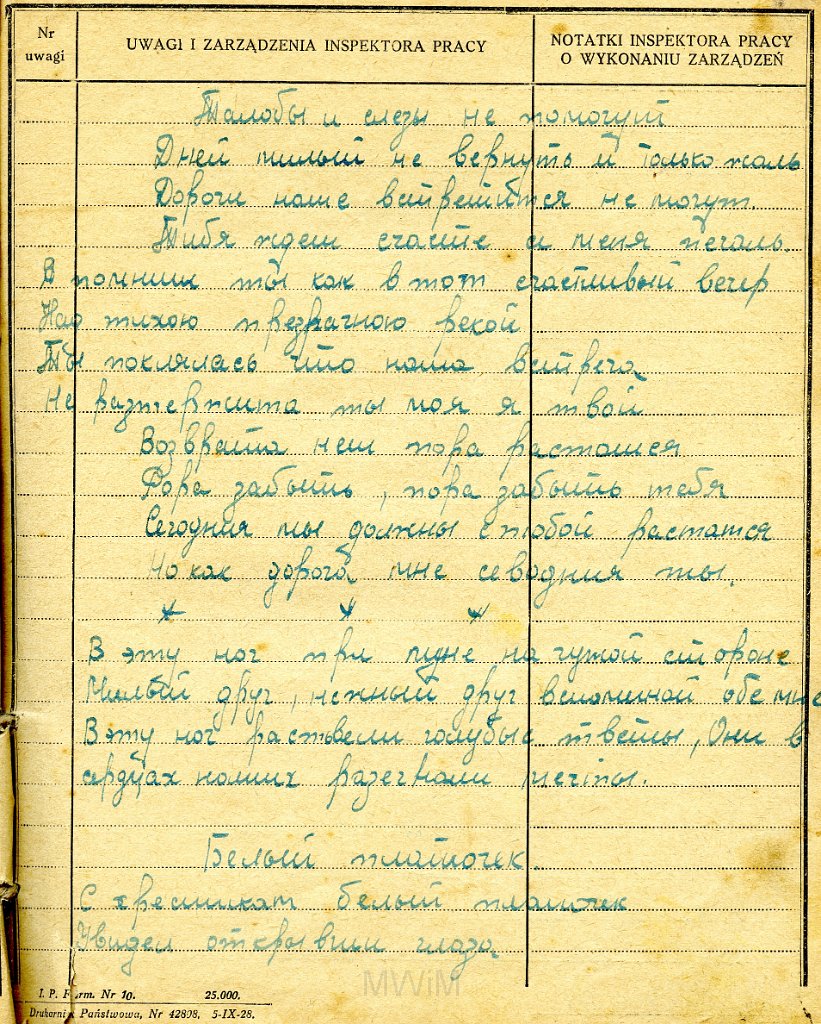 Nr uwagi
UWAGI I ZARZĄDZENIA INSPEKTORA PRACY
NOTATKI INSPEKTORA PRACY
O WYKONANIU ZARZĄDZEŃ
и слезы не помогут
Дней милый не вернуть и только жаль
Дороги наше встретится не могут.
Тибя ждет счасте а меня печаль.
В помниш ты как в тот счастливый вечер
Над тихою прозрачною рекой
Ты поклялась што наша встреча
Не ты моя я твой
Возврата нет пора растатся
Пора забыть, пора забыть тебя
Сегодния мы должны с тобой растатся
Но как дорога мне севодния ты.
В эту ноч при луне на чужой стороне
Милый друг, нежный друг вспоминой обе мне
В эту ноч растьвели голубые тветы, Они в
сердцах наших мечты.
Белый платочек.
С белый платочек
Увидел открывши глаза
MWiM
I. P. Form. Nr 10. 25.000.
Drukarnia Państwowa, Nr 42808. 5-IX-28.